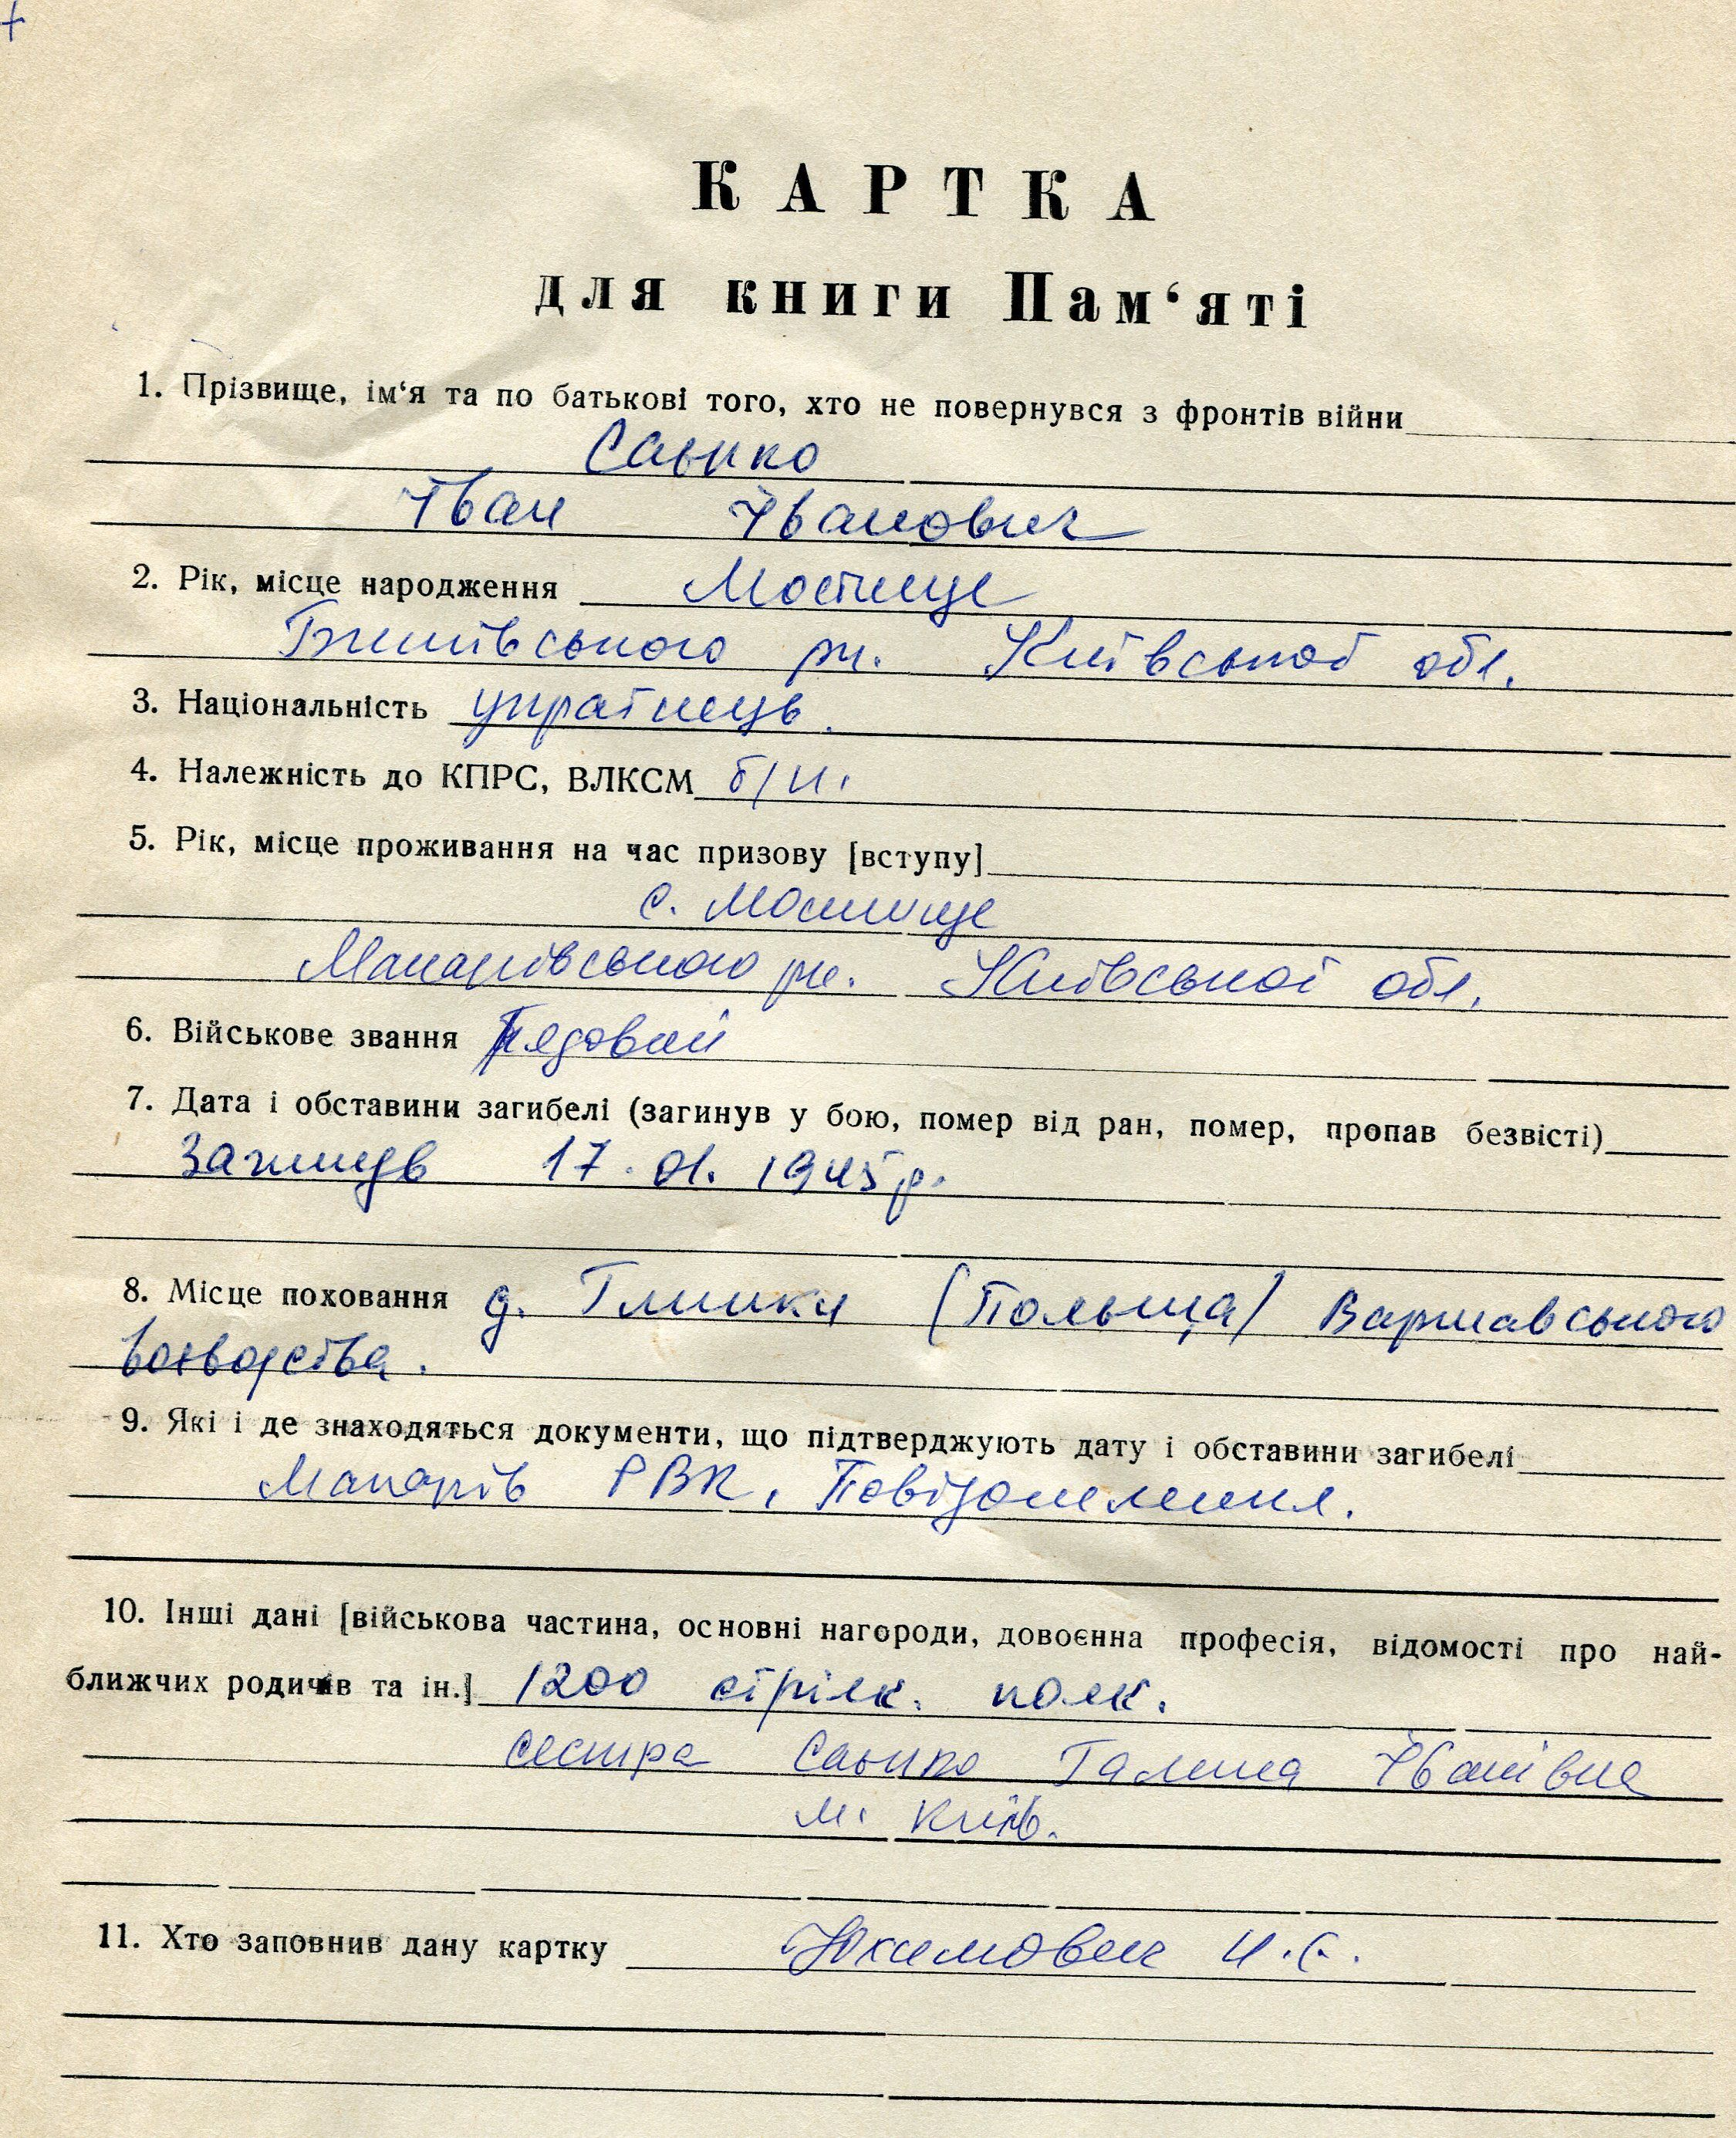 КАРТКА
для книги Пам‘яті
1. Прізвище, ім‘я та по батькові того, хто не повернувся з фронтів війни
Санько
Іван Іванович
2. Рік, місце народження Мостище
Бишівського рн. Київської обл.
3. Національність українець.
4. Належність до КПРС, ВЛКСМ б/п.
5. Рік, місце проживання на час призову [вступу]
с. Мостище
Макарівського рн. Київської обл.
6. Військове звання Рядовий
7. Дата і обставини загибелі (загинув у бою, помер від ран, помер, пропав безвісті)
Загинув 17.01.1945р.
8. Місце поховання д. Глинки (Польща) Варшавського
воєводства.
9. Які і де знаходяться документи, що підтверджують дату і обставини загибелі
Макарів РВК, Повідомлення.
10. Інші дані [військова частина, основні нагороди, довоєнна професія, відомості про най-
ближчих родичів та ін.] 1200 стрілк. полк.
сестра Санько Галина Іванівна
м. Київ.
11. Хто заповнив дану картку